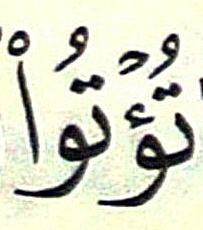 تُؤۡتُوا۟